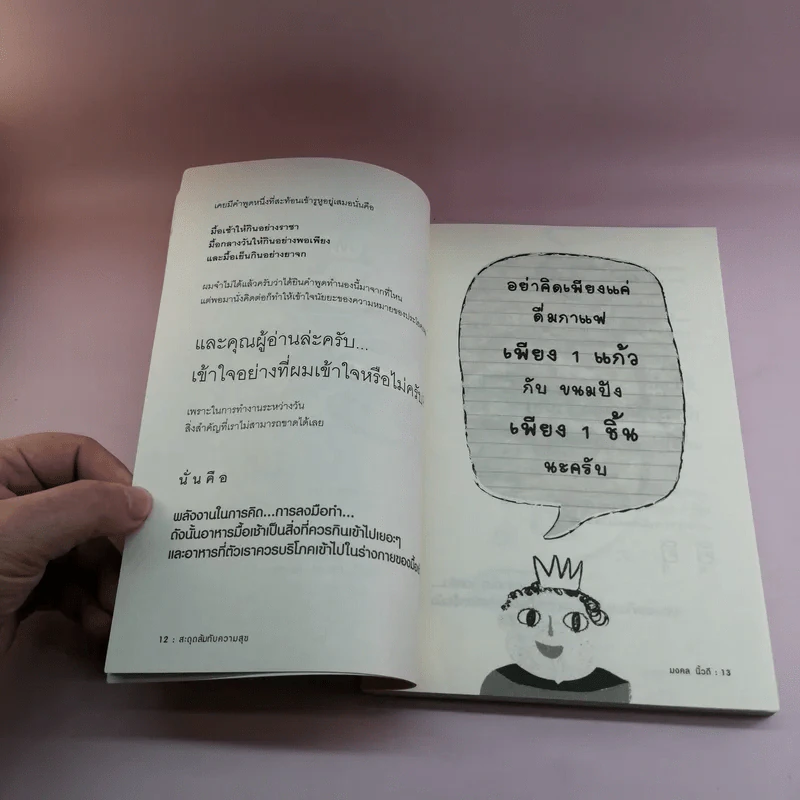 เคยมีคำพูดหนึ่งที่สะท้อนเข้ารูหูอยู่เสมอนั่นคือ
มื้อเช้าให้กินอย่างราชา
มื้อกลางวันให้กินอย่างพอเพียง
และมื้อเย็นกินอย่างยาจก
ผมจำไม่ได้แล้วครับว่าได้ยินคำพูดทำนองนี้มาจากที่ไหน
แต่พอมานั่งคิดต่อก็ทำให้เข้าใจนัยยะของความหมายของ
และคุณผู้อ่านล่ะครับ...
เข้าใจอย่างที่ผมเข้าใจหรือไม่ครับ
เพราะในการทำงานระหว่างวัน
สิ่งสำคัญที่เราไม่สามารถขาดได้เลย
นั่นคือ
พลังงานในการคิด...การลงมือทำ...
ดังนั้นอาหารมื้อเช้าเป็นสิ่งที่ควรกินเข้าไปเยอะๆ
และอาหารที่ตัวเราควรบริโภคเข้าไปในร่างกายของมื้อ
12 : สะดุดล้มทับความสุข
อย่าคิดเพียงแค่
ดื่มกาแฟ
เพียง 1 แก้ว
กับ ขนมปัง
เพียง 1 ชิ้น
นะครับ
มงคล นิ้วดี : 13